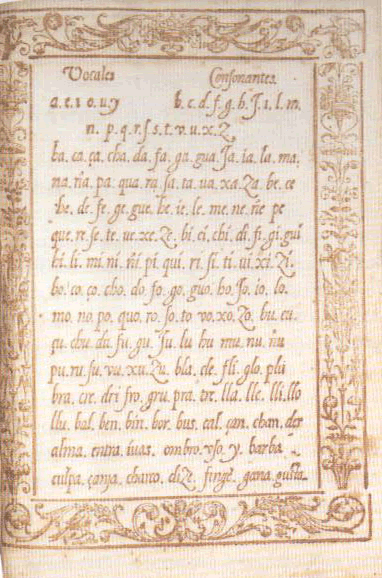 Vocales Consonantes
a. e. i. o. u. y b. c. d. f. g. h. J. i. l. m.
n. p. q. r. ſ s. t. v. u. x. Z
ba. ca. ça. cha. da. fa. ga. gua. Ja. ia. la. ma.
na. ña. pa. qua. ra. sa. ta. va. xa. Za. be. ce
he. de. fe. ge. gue. be. ie. le. me. ne. ñe pe
que. re. se. te. ve. xe. Ze. bi. ci. chi. di. fi. gi. gui
hi. li. mi. ni. ñi. pi. qui. ri. si. ti. vi. xi. Zi.
bo. co. ço. cho. do. fo. go. guo. ho. Jo. io. lo.
mo. no. po. quo. ro. so. to vo. xo. Zo. bu. cu.
çu. chu. du. fu. gu. Ju. lu hu mu. nu. ñu
pu. ru. su. vu. xu. Zu. bla. cle. fli. glo. plu
bra. cre. dri fro. gru. pra. tre. lla. lle. lli. llo
llu. bal. ben. bir. bor. bus. cal. çan. chan. der
alma. entra. uvas. ombro. yso. y. barba
culpa. çanja. charco. diZe. finge. gana. gusta